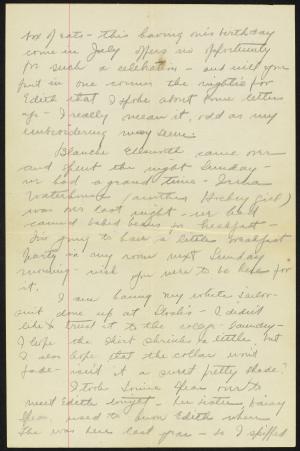 box of eats - this having one's birthday
come in July offers no opportunity
for such a celebration - and will you
put in one corner the nightie for
Edith that I spoke about some letters
ago - I really mean it, odd as my
embroidering may seem.
Blanche Ellsworth came over
and spent the night Sunday -
we had a grand time - Irma
Waterhouse (another Hockey girl)
was over last night - we had
canned baked beans for breakfast -
I'm going to have a little breakfast
party in my room next Sunday
morning - wish you were to be here for
it.
I am having my white tailor
suit done up at - I didn't
like to trust it to the college laundry -
I hope the skirt shrinks a little but
I also hope that the collar won't
fade - isn't it a sweet pretty shade?
I took Louise over to
meet Edith tonight - her sister Daisy
used to know Edith when
she was here last year - so I